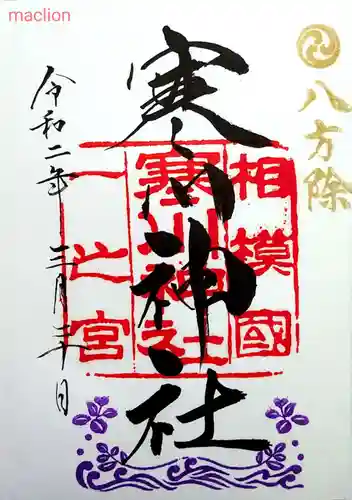 maclion
八方除
寒川神社
相模國
寒川神社
一之宮
令和二年 三月二十日